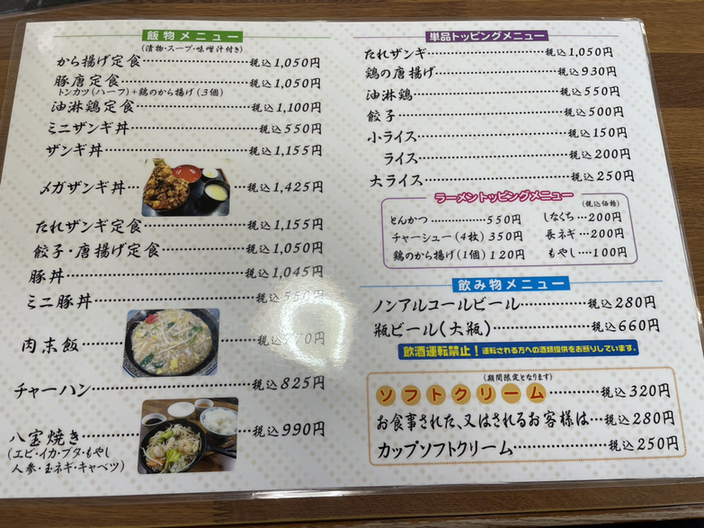 飯物メニュー
(漬物・スープ・味噌汁付き)
から揚げ定食 税込1,050円
豚唐定食 税込1,050円
トンカツ(ハーフ)+鶏のから揚げ(3個)
油淋鶏定食 税込1,100円
ミニザンギ丼 税込550円
ザンギ丼 税込1,155円
メガザンギ丼 税込1,425円
たれザンギ定食 税込1,155円
餃子・唐揚げ定食 税込1,050円
豚丼 税込1,045円
ミニ豚丼 税込550円
肉末飯
チャーハン 税込825円
八宝焼き 税込990円
(エビ・イカ・ブタ・もやし
人参・玉ネギ・キャベツ)
単品トッピングメニュー
たれザンギ 税込1,050円
鶏の唐揚げ 税込930円
油淋鶏 税込550円
餃子 税込500円
小ライス 税込150円
ライス 税込200円
大ライス 税込250円
ラーメントッピングメニュー
(税込価格)
とんかつ 550円 しなちく 200円
チャーシュー(4枚) 350円 長ネギ 200円
鶏のから揚げ(1個) 120円 もやし 100円
飲み物メニュー
ノンアルコールビール 税込280円
瓶ビール(大瓶) 税込660円
飲酒運転禁止!運転される方への酒類提供をお断りしています。
(期間限定となります)
ソフトクリーム 税込320円
お食事された、又はされるお客様は 税込280円
カップソフトクリーム 税込250円